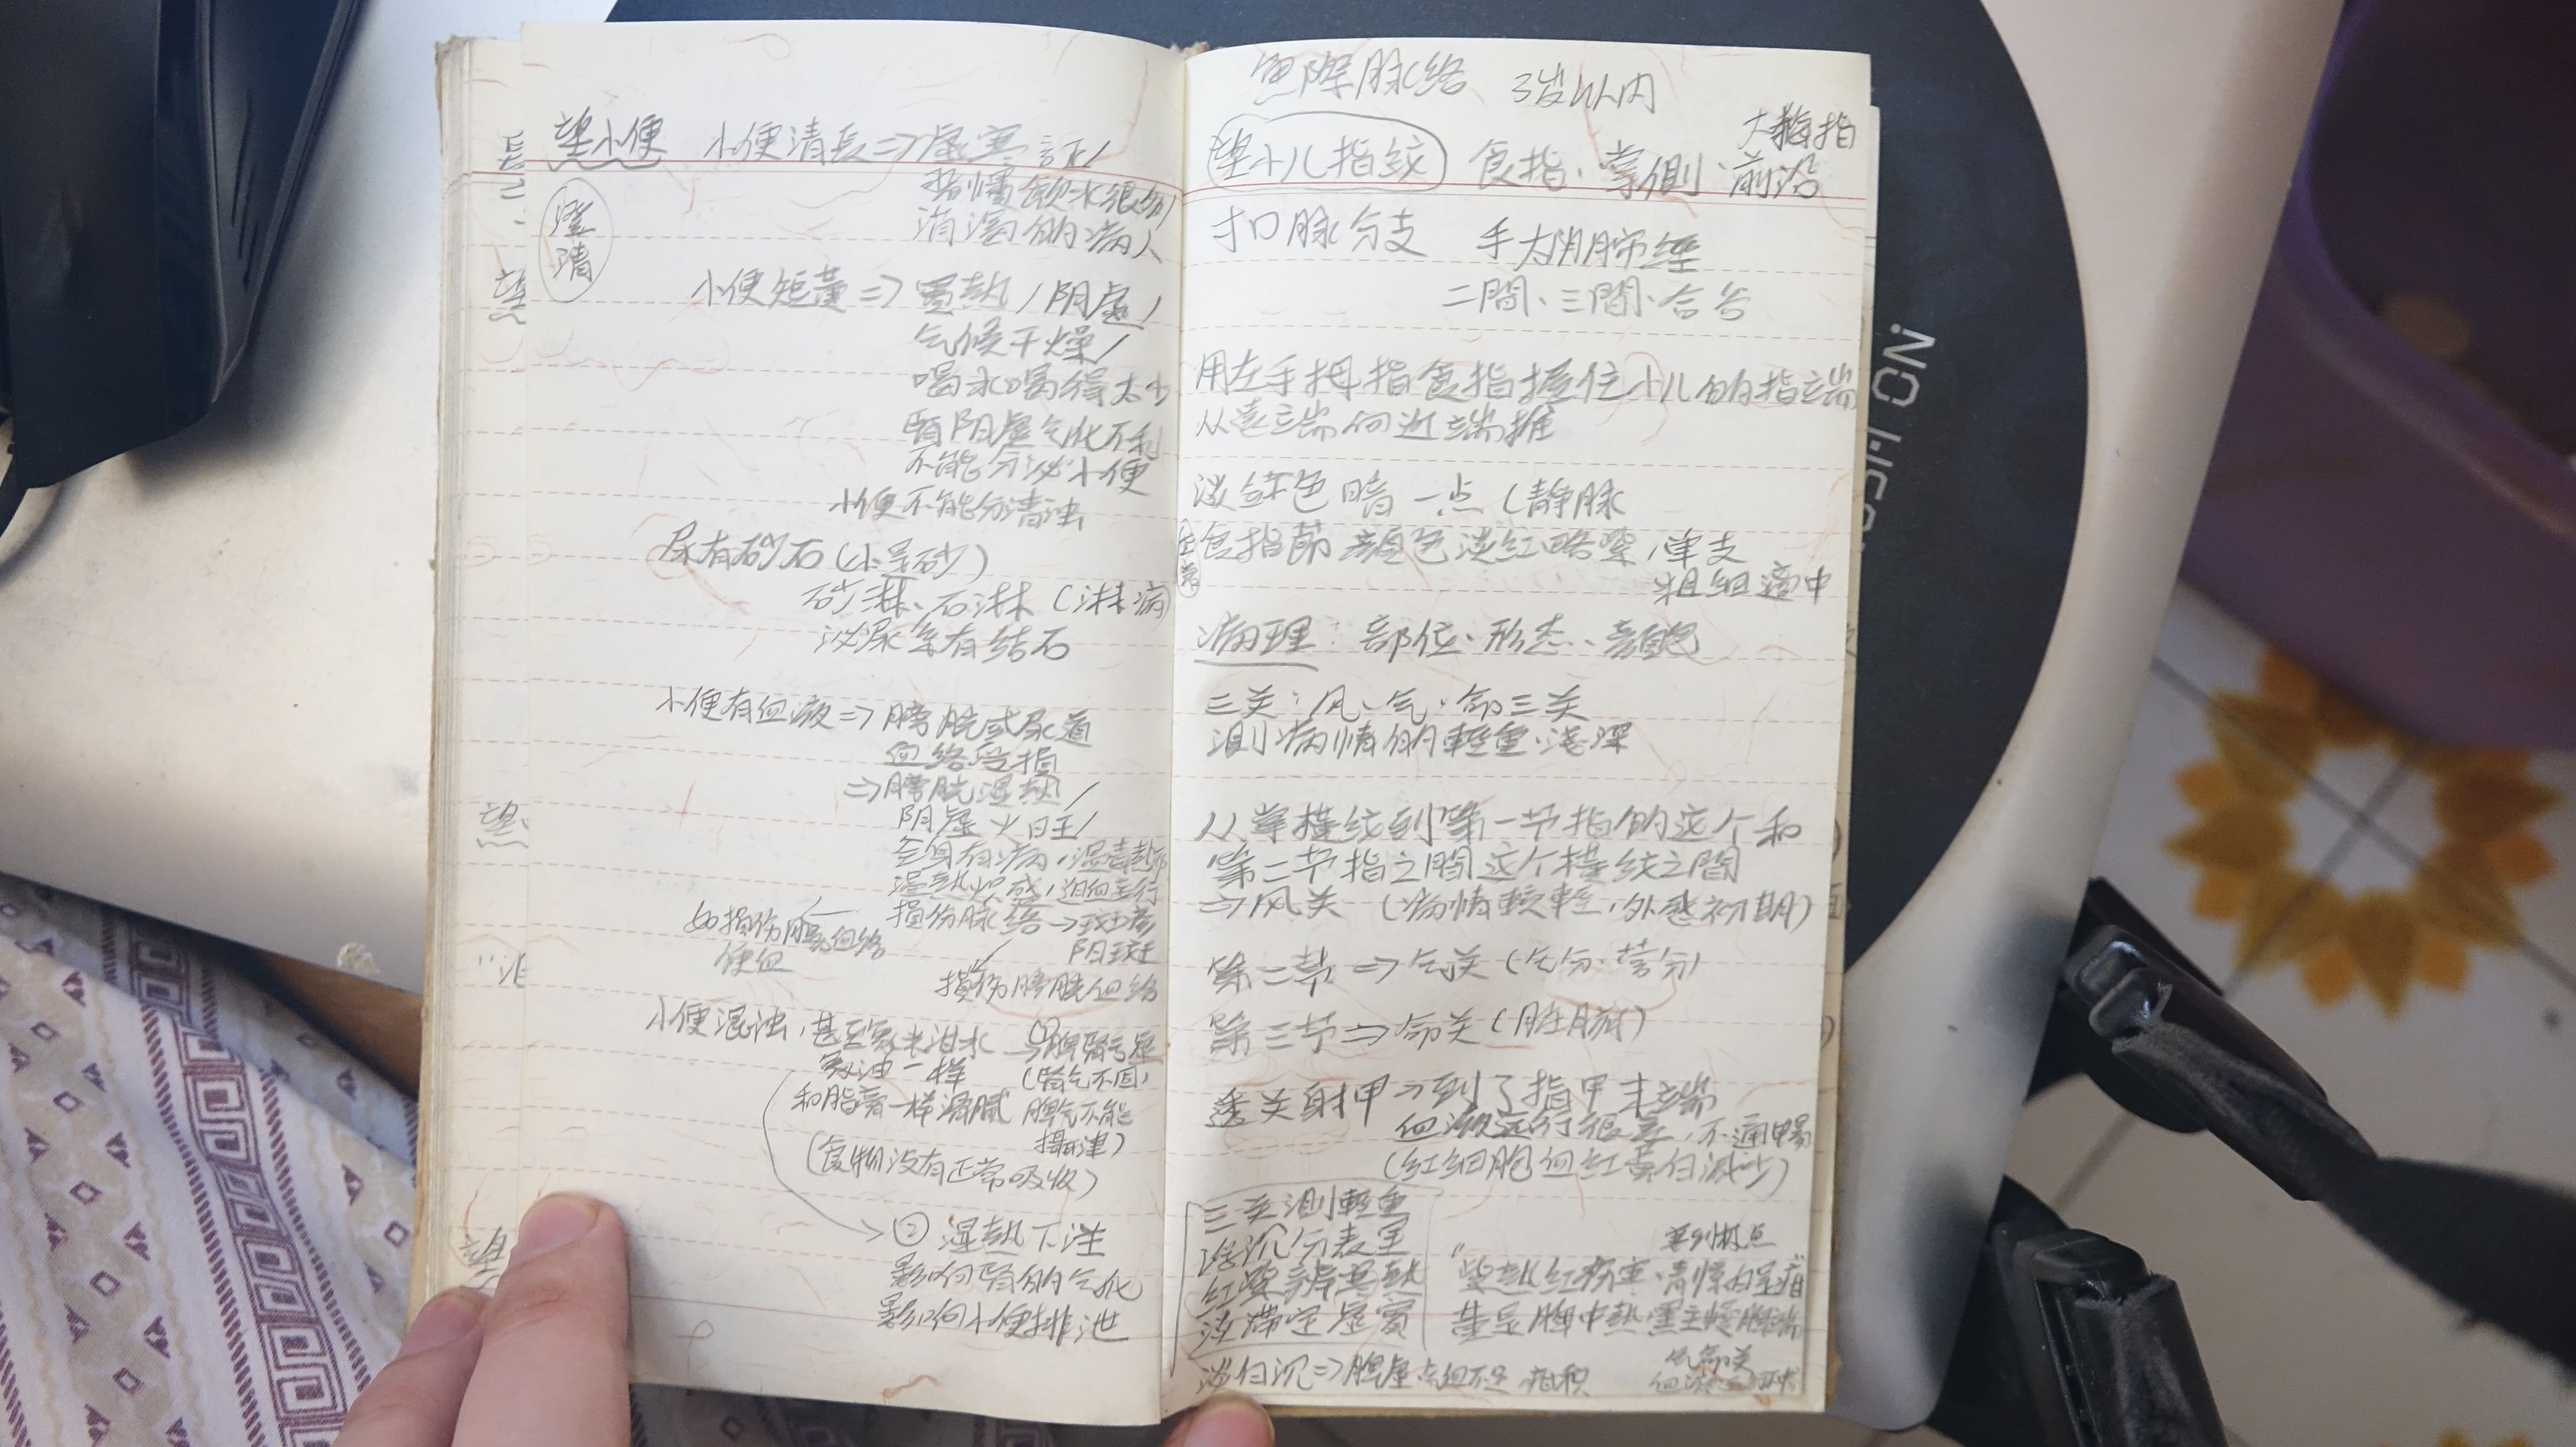 望小便 小便清長⇒虛寒証/
澄清
飲水很多/
消渴的病人
小便短黃⇒實熱/阴虛/
气候干燥/
喝水喝得太少
腎阴虛气化不利
不能分泌小便
小便不能分清浊
尿有砂石(小呈砂)
砂淋、石淋(淋病)
泌尿系有结石
小便有血液⇒膀胱或尿道
血络受損
⇒膀胱湿熱/
阴虛火旺/
全身有病,湿毒熱邪
湿熱炽盛,迫血妄行
損伤脉络→斑疹
阴斑
如損伤腸血络
便血
損伤膀胱血络
小便混浊,甚至象米泔水
象油一样
和脂膏一样滑腻
①脾腎亏虛
(腎气不固,
脾气不能
攝津)
(食物没有正常吸收)
② 湿熱下注
影响腎的气化
影响小便排泄
魚际脉络 3岁以内
大拇指
望小儿指紋 食指、掌側、前沿
寸口脉分支 手太阴肺经
二間、三間、合谷
用左手拇指食指握住小儿的指端
从遠端向近端推
淡红色暗一点(静脉
正常
食指節顏色淡红略紫,单支
粗细適中
病理:部位、形态、顏色
三关:风、气、命三关
測病情的輕重、浅深
从掌横纹到第一节指的这个和
第二节指之間这个横纹之間
⇒风关(病情較輕,外感初期)
第二节⇒气关(气分、营分)
第三节⇒命关(脏腑)
透关射甲→到了指甲末端
血液运行很差,不通暢
(红细胞血红蛋白减少)
三关測輕重
浮沉分表里
红紫辨寒熱
淡滯定虛實
紫熱红伤寒、青惊白是疳
黃是脾中熱、黑主
淡白沉⇒脾虛,气血不足 疳积
气命关